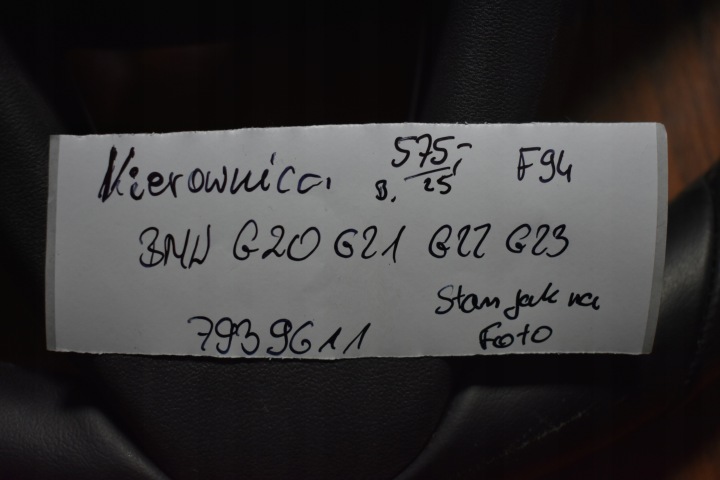 Kierownica B. 575,- F94
25
BMW G20 G21 G22 G23
Stan jak na
Foto
7939611